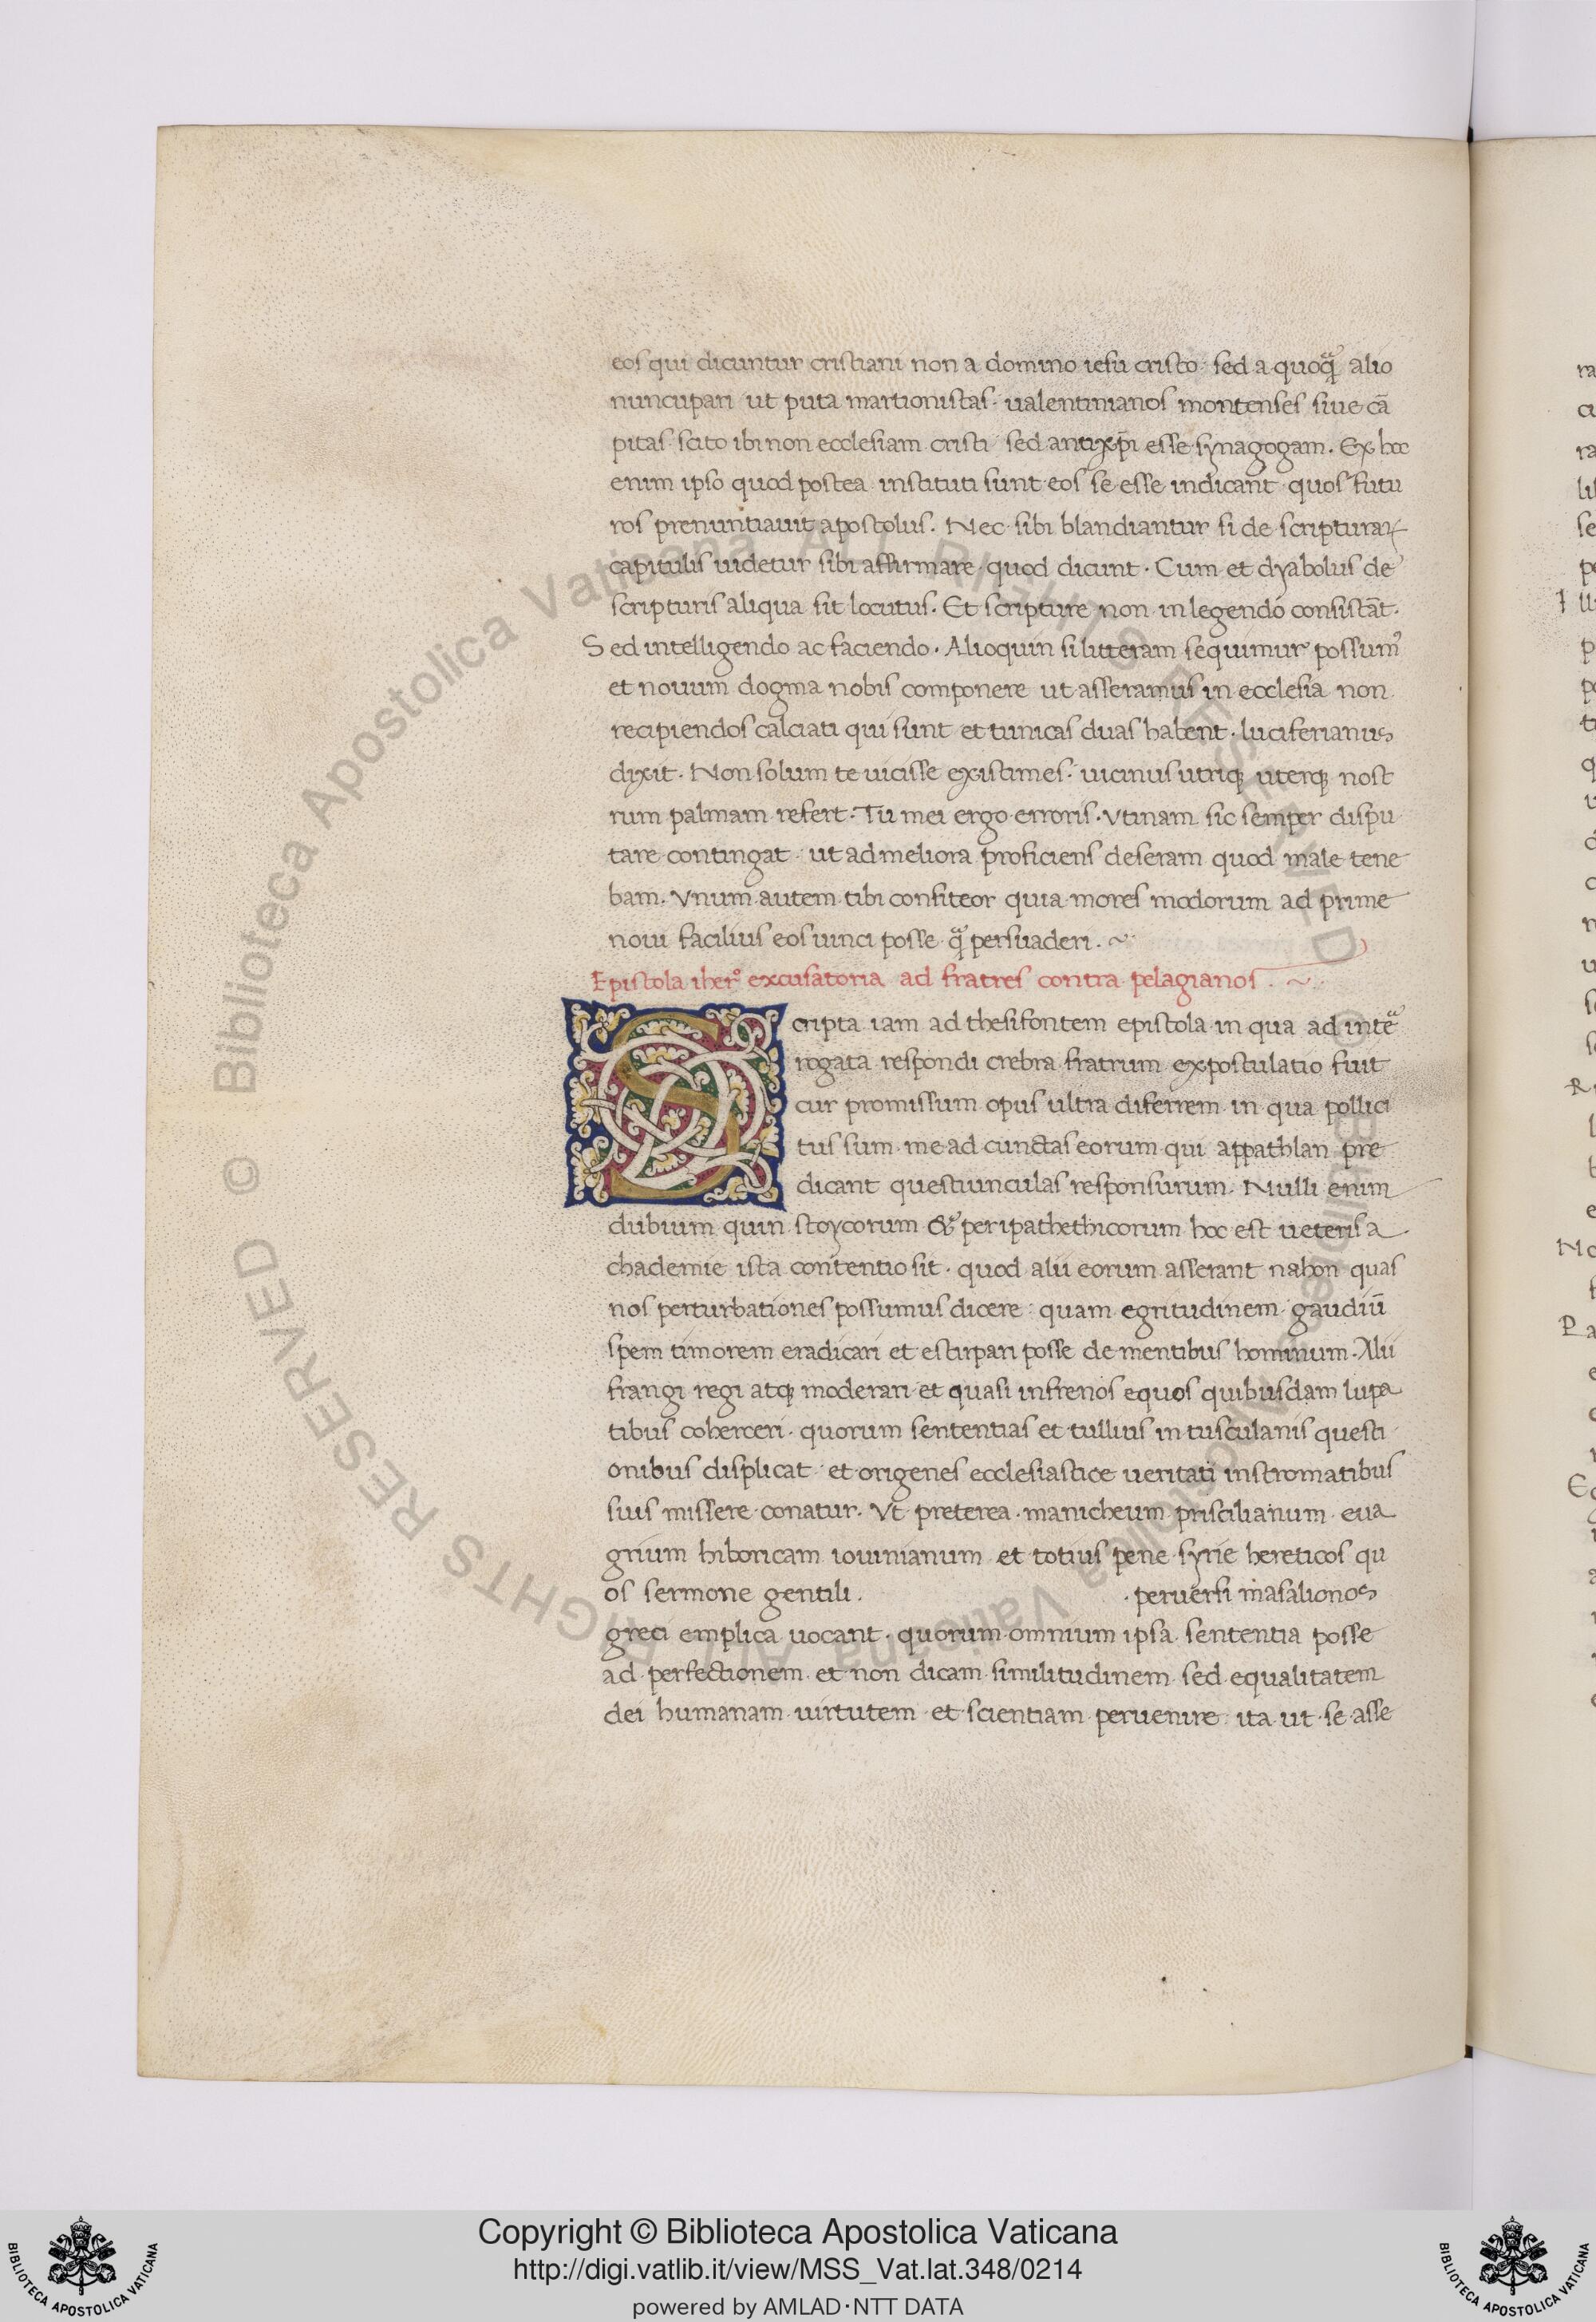 eos qui dicuntur cristiani non a domino iesu cristo · sed a quoqᷓ alio
nuncupari ut puta martionistas · ualentinianos montenses siue cā
pitas · scito ibi non ecclesiam cristi sed antixp̄i esse synagogam . Ex hoc
enim ipso quod postea instituti sunt eos se esse indicant quos futu
ros prenuntiauit apostolus . Nec sibi blandiantur si de scripturaꝝ
capitulis uidetur sibi affirmare quod dicunt . Cum et dyabolus de
scripturis aliqua sit locutus . Et scripture non in legendo consistāt .
Sed intelligendo ac faciendo . Alioquin si litteram sequimur possum᾿
et nouum dogma nobis componere ut asseramus in ecclesia non
recipiendos calciati qui sunt et tunicas duas habent . luciferianus
dixit . Non solum te uicisse existimes . uicinus utriqꝫ uterqꝫ nost
rum palmam refert . Tu mei ergo erroris . Vtinam sic semper dispu
tare contingat · ut ad meliora proficiens deseram quod male tene
bam . Vnum autem tibi confiteor quia mores modorum ad prime
noui facilius eos uinci posse qᷓ persuaderi . ~
Epistola iherº excusatoria ad fratres contra pelagianos . ~
Scripta iam ad thesifontem epistola in qua ad inteᷓ
rogata respondi crebra fratrum expostulatio fuit
cur promissum opus ultra diferrem in qua pollici
tus sum me ad cunctas eorum qui appathlan pre
dicant questiunculas responsurum . Nulli enim
dubium quin stoycorum & peripathethicorum hoc est ueteris a
chademie ista contentio sit . quod alii eorum asserant nahon quas
nos perturbationes possumus dicere : quam egritudinem gaudiū
spem timorem eradicari et estirpari posse de mentibus hominum . Alii
frangi regi atqꝫ moderari et quasi infrenos equos quibusdam lupa
tibus coherceri . quorum sententias et tullius in tusculanis questi
onibus displicat et origenes ecclesiastice ueritati instromatibus
suis missere conatur . Vt preterea . manicheum priscilianum eua
grium hiboricam iouinianum et totius pene syrie hereticos qu
os sermone gentili . . peruersi masalionos
greci emplica uocant . quorum omnium ipsa sententia posse
ad perfectionem et non dicam similitudinem sed equalitatem
dei humanam uirtutem et scientiam peruenire : ita ut se asse
Copyright © Biblioteca Apostolica Vaticana
http://digi.vatlib.it/view/MSS_Vat.lat.348/0214
powered by AMLAD·NTT DATA